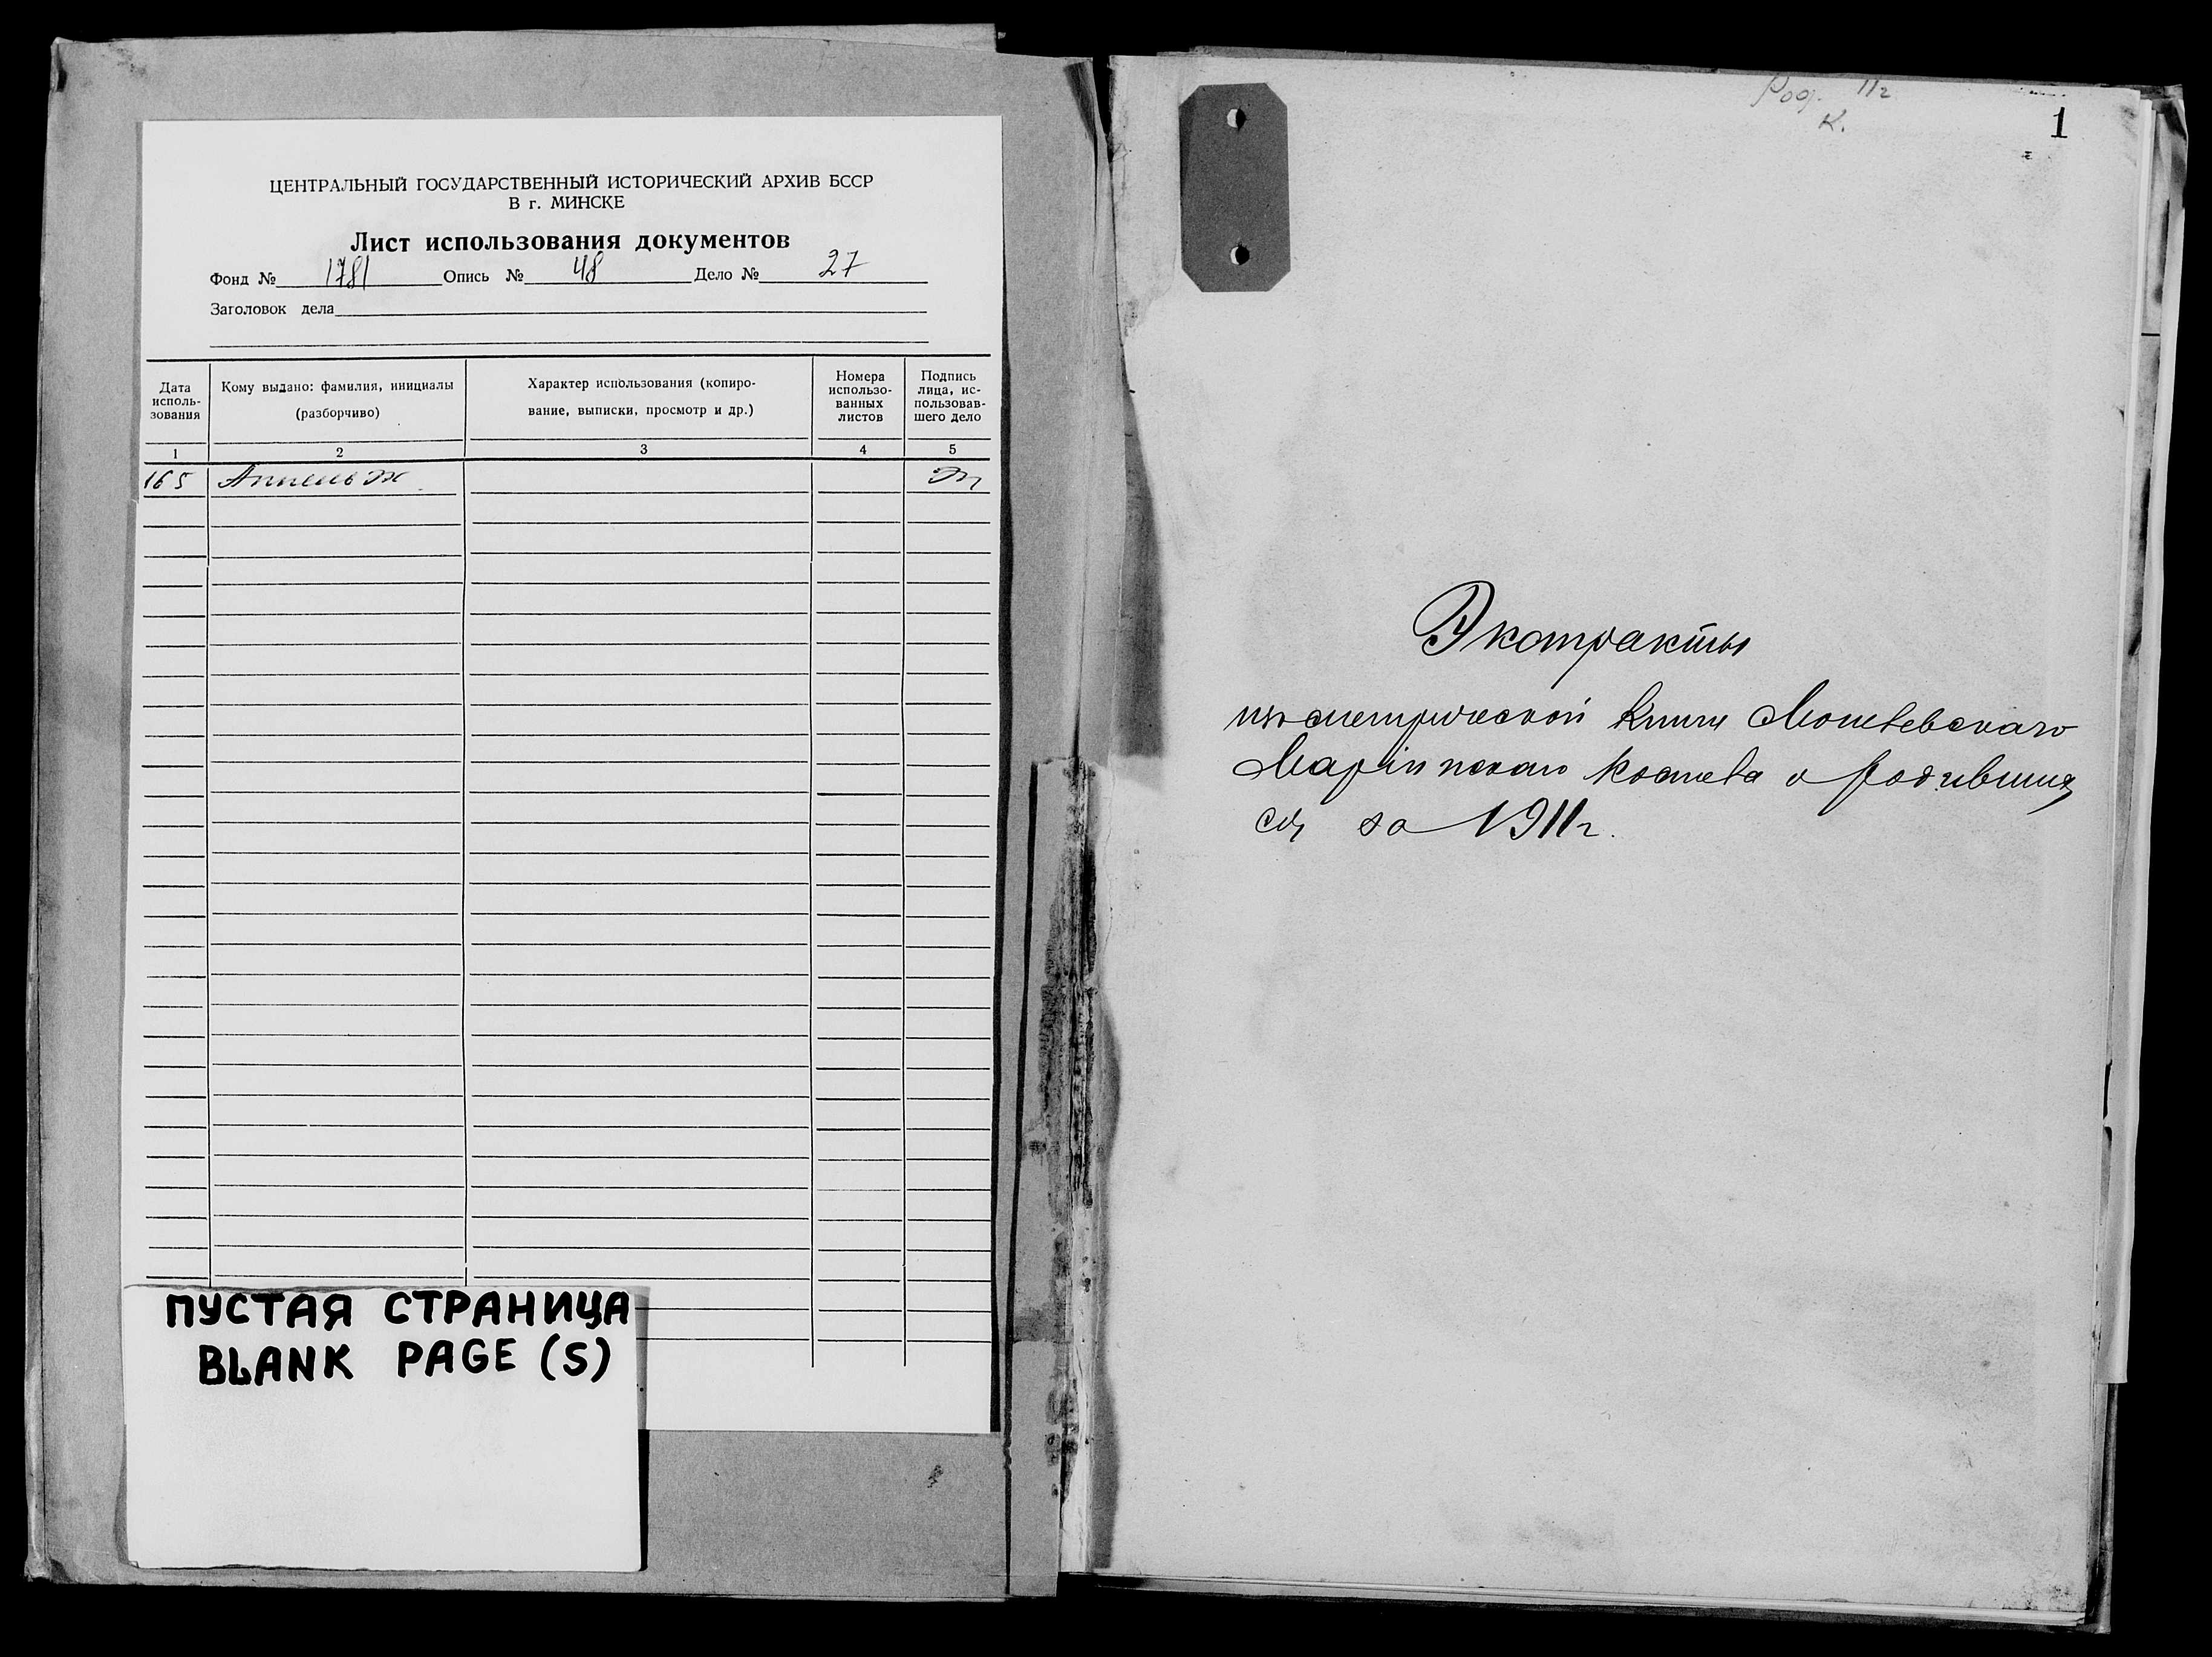 ЦЕНТРАЛЬНЫЙ ГОСУДАРСТВЕННЫЙ ИСТОРИЧЕСКИЙ АРХИВ БССР
В г. МИНСКЕ
Лист использования документов
Фонд № 1781 Опись № 48 Дело № 27
Заголовок дела
Дата
исполь-
зования
Кому выдано: фамилия, инициалы
(разборчиво)
Характер использования (копиро-
вание, выписки, просмотр и др.)
Номера
использо-
ванных
листов
Подпись
лица, ис-
пользовав-
шего дело
1 2 3 4 5
165
ПУСТАЯ СТРАНИЦА
BLANK PAGE (S)
Род. 11г
К.
1
Экстракты
изъ метрической книги
костела о родивших
ся за 1911г.